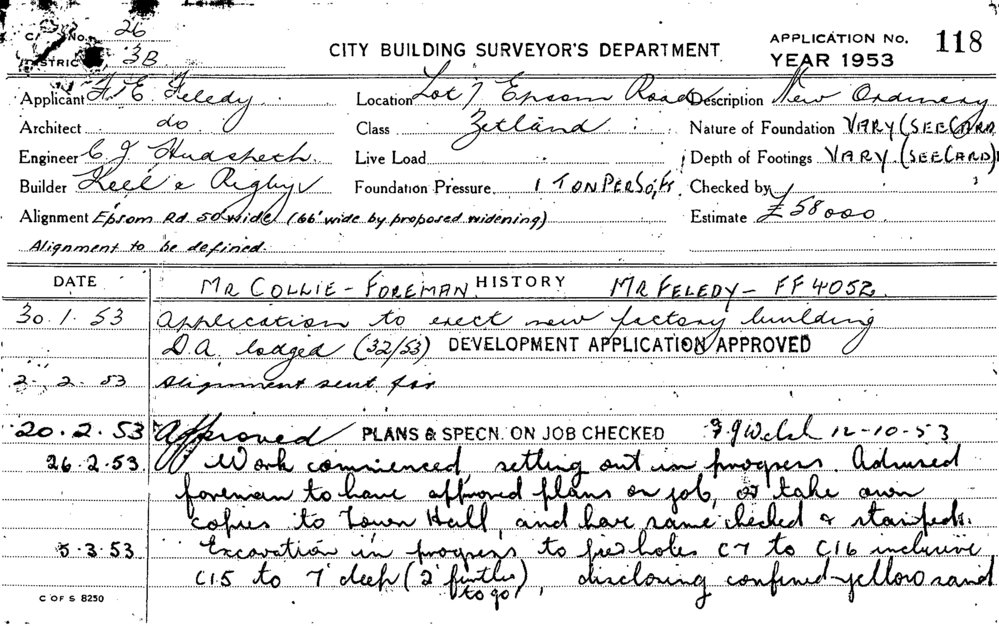 26
3B
CITY BUILDING SURVEYOR'S DEPARTMENT
APPLICATION No. 118
YEAR 1953
Applicant F. E. Feledy
Location Lot 7 Epsom Road
Description New Ordinary
Architect do
Class Zetland
Nature of Foundation VARY (SEE CARD)
Engineer C J Hudspeth
Live Load
Depth of Footings VARY (SEE CARD)
Builder Keel & Rigby
Foundation Pressure 1 TON PER SQ. FT
Checked by
Alignment Epsom Rd 50' wide (66' wide by proposed widening)
Estimate £58000
Alignment to be defined.
DATE HISTORY
MR COLLIE - FOREMAN MR FELEDY - FF4052
30.1.53 Application to erect new factory building
D.A. lodged (32/53) DEVELOPMENT APPLICATION APPROVED
2.2.53 Alignment sent for
20.2.53 Approved PLANS & SPECN. ON JOB CHECKED F J Welch 12-10-53
26.2.53 Work commenced, setting out in progress. Advised
foreman to have approved plans on job, or take own
copies to Town Hall, and have same checked & stamped.
5.3.53 Excavation in progress to pier holes C7 to C16 inclusive
C15 to 7' deep (2' further to go), disclosing confined yellow sand
C OF S 8250